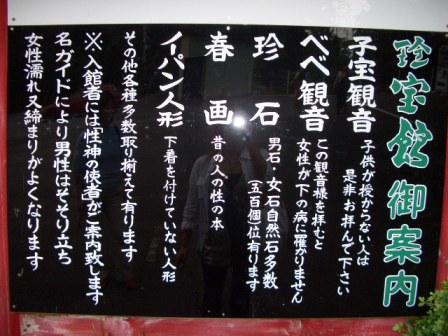 珍宝館御案内
子宝観音
子供が授からない人は
是非お拝んで下さい
べべ観音
この観音様を拝むと
女性が下の病に罹りません
珍石
男石・女石自然石多数
(五百個位有ります)
春画
昔の人の性の本
イパン人形
下着を付けていない人形
その他各種多数取り揃えて有ります
※入館者には「性神の使者」がご案内致します
名ガイドにより男性はそそり立ち
女性濡れ又締まりがよくなります